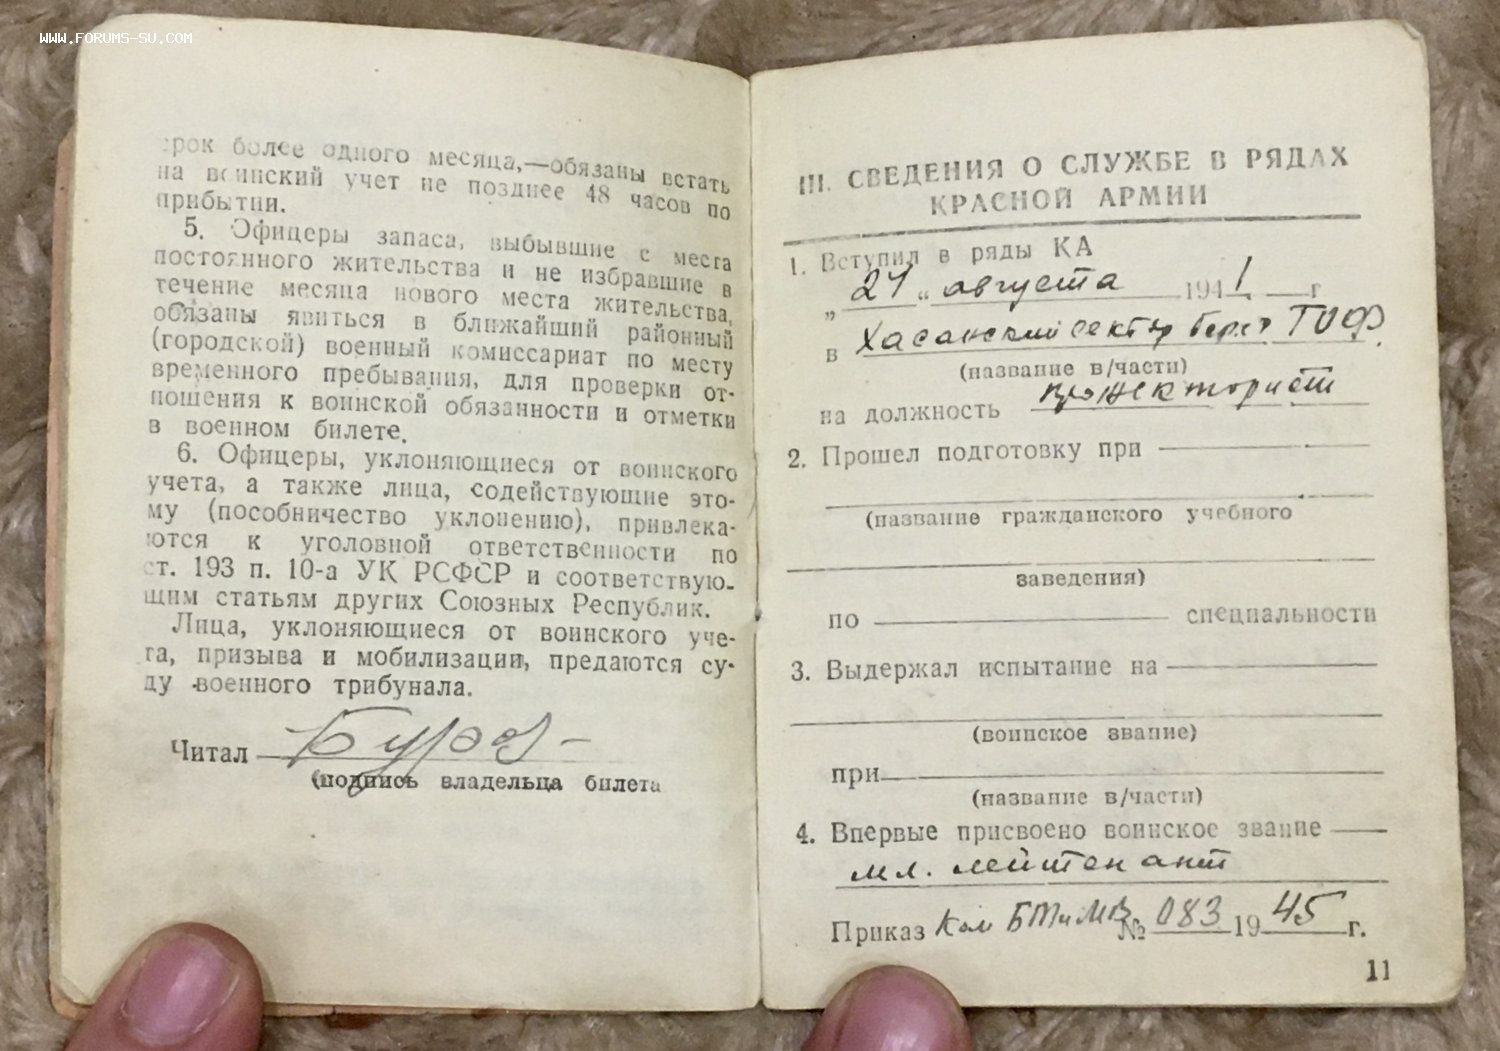 WWW.FORUMS-SU.COM
срок более одного месяца,—обязаны встать
на воинский учет не позднее 48 часов по
прибытии.
5. Офицеры запаса, выбывшие с места
постоянного жительства и не избравшие в
течение месяца нового места жительства,
обязаны явиться в ближайший районный
(городской) военный комиссариат по месту
временного пребывания, для проверки от-
ношения к воинской обязанности и отметки
в военном билете.
6. Офицеры, уклоняющиеся от воинского
учета, а также лица, содействующие это-
му (пособничество уклонению), привлека-
ются к уголовной ответственности по
ст. 193 п. 10-а УК РСФСР и соответствую-
щим статьям других Союзных Республик.
Лица, уклоняющиеся от воинского уче-
та, призыва и мобилизации, предаются су-
ду военного трибунала.
Читал
(подпись владельца билета
III. СВЕДЕНИЯ О СЛУЖБЕ В РЯДАХ
КРАСНОЙ АРМИИ
1. Вступил в ряды КА
„ “ августа 1941 г
в Хасанский сектор ТОФ
(название в/части)
на должность прожекторист
2. Прошел подготовку при
(название гражданского учебного
заведения)
по специальности
3. Выдержал испытание на
(воинское звание)
при
(название в/части)
4. Впервые присвоено воинское звание
мл. лейтенант
Приказ Ком БТиМВ № 083 1945 г.
11